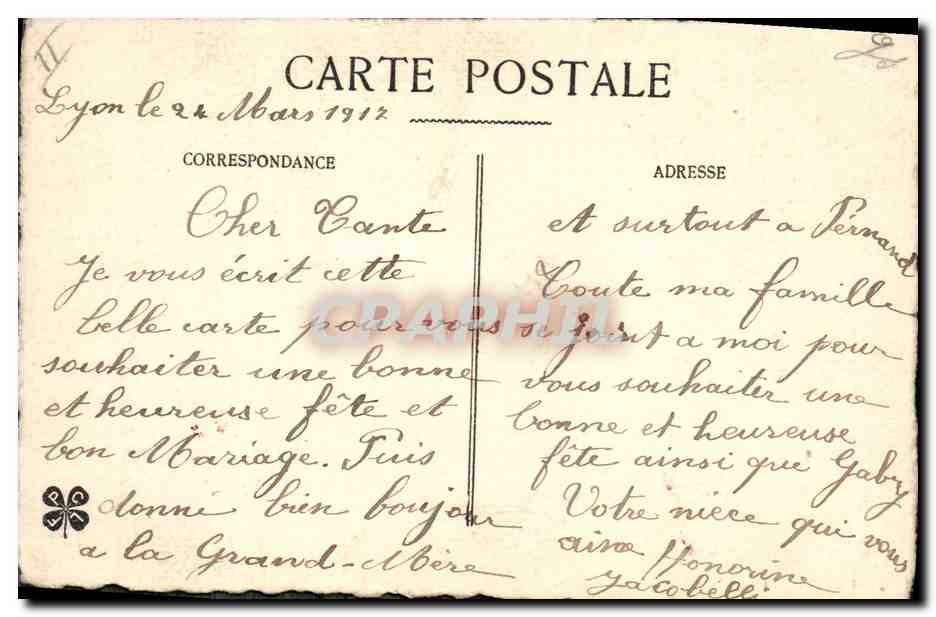 CARTE POSTALE
Lyon le 24 Mars 1917
CORRESPONDANCE
Cher Tante
Je vous écrit cette
belle carte pour vous
souhaiter une bonne
et heureuse fête et
bon Mariage. Puis
donné bien boujour
a la Grand-Mère
ADRESSE
et surtout a Fernand
Toute ma famille
se joint a moi pour
vous souhaiter une
bonne et heureuse
fête ainsi que Gaby
Votre nièce qui vous
aime Honorine
Jacobelli
CRAPHIL